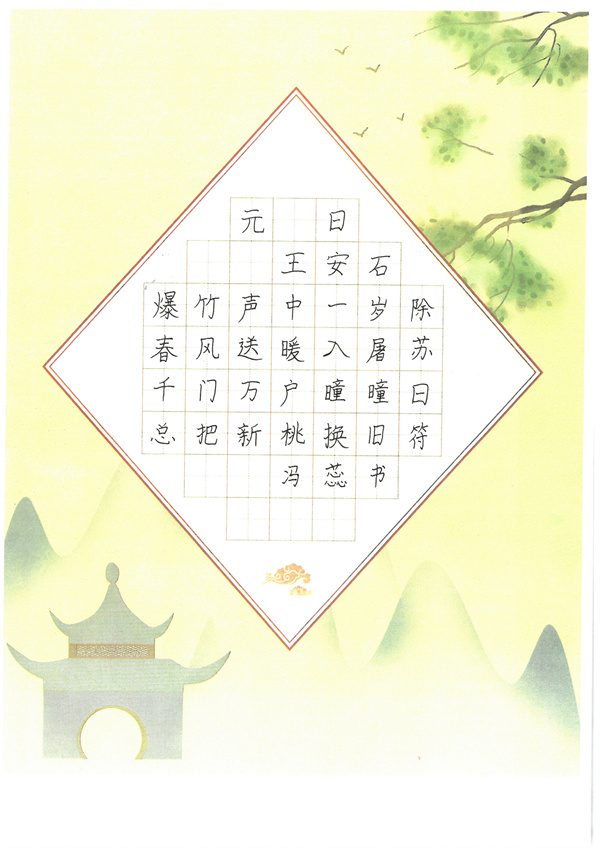 元日
王安石
爆竹声中一岁除
春风送暖入屠苏
千门万户曈曈日
总把新桃换旧符
冯蕊书